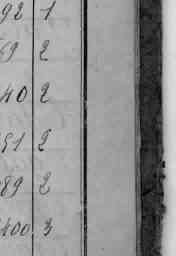 92 1
69 2
40 2
51 2
89 2
400 3